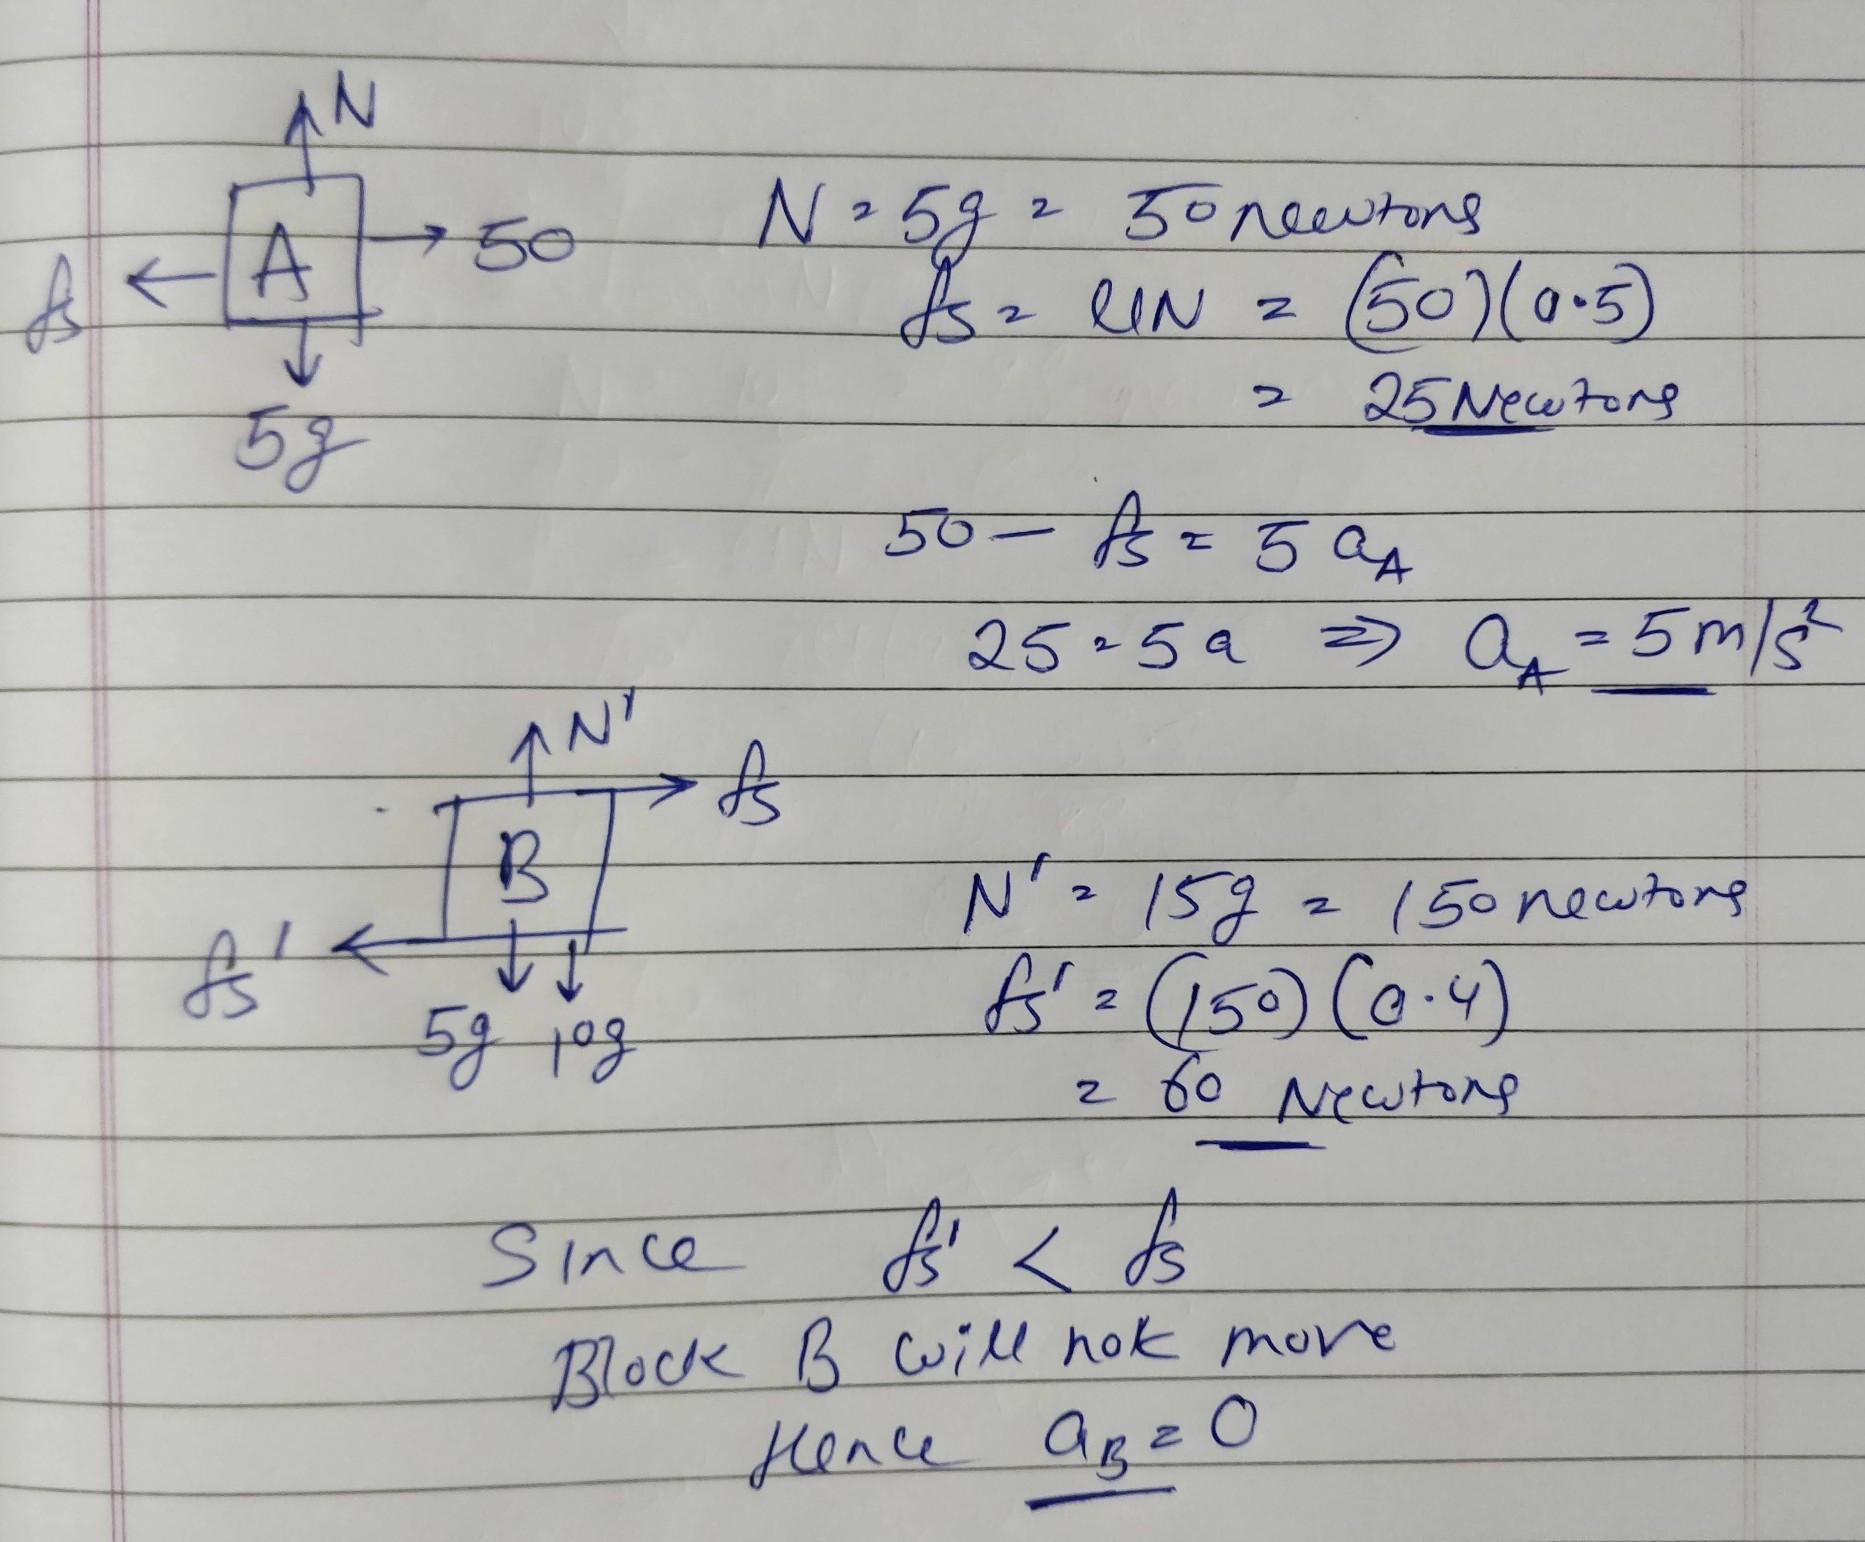 N
A
→ 50
fs ←
5g
N = 5g = 50 newtons
fs = μN = (50)(0.5)
= 25 Newtons
50 - fs = 5 a_A
25 = 5a ⇒ a_A = 5 m/s²
N'
fs
B
fs'
5g 10g
N' = 15g = 150 newtons
fs' = (150)(0.4)
= 60 Newtons
Since fs' < fs
Block B will not move
Hence a_B = 0